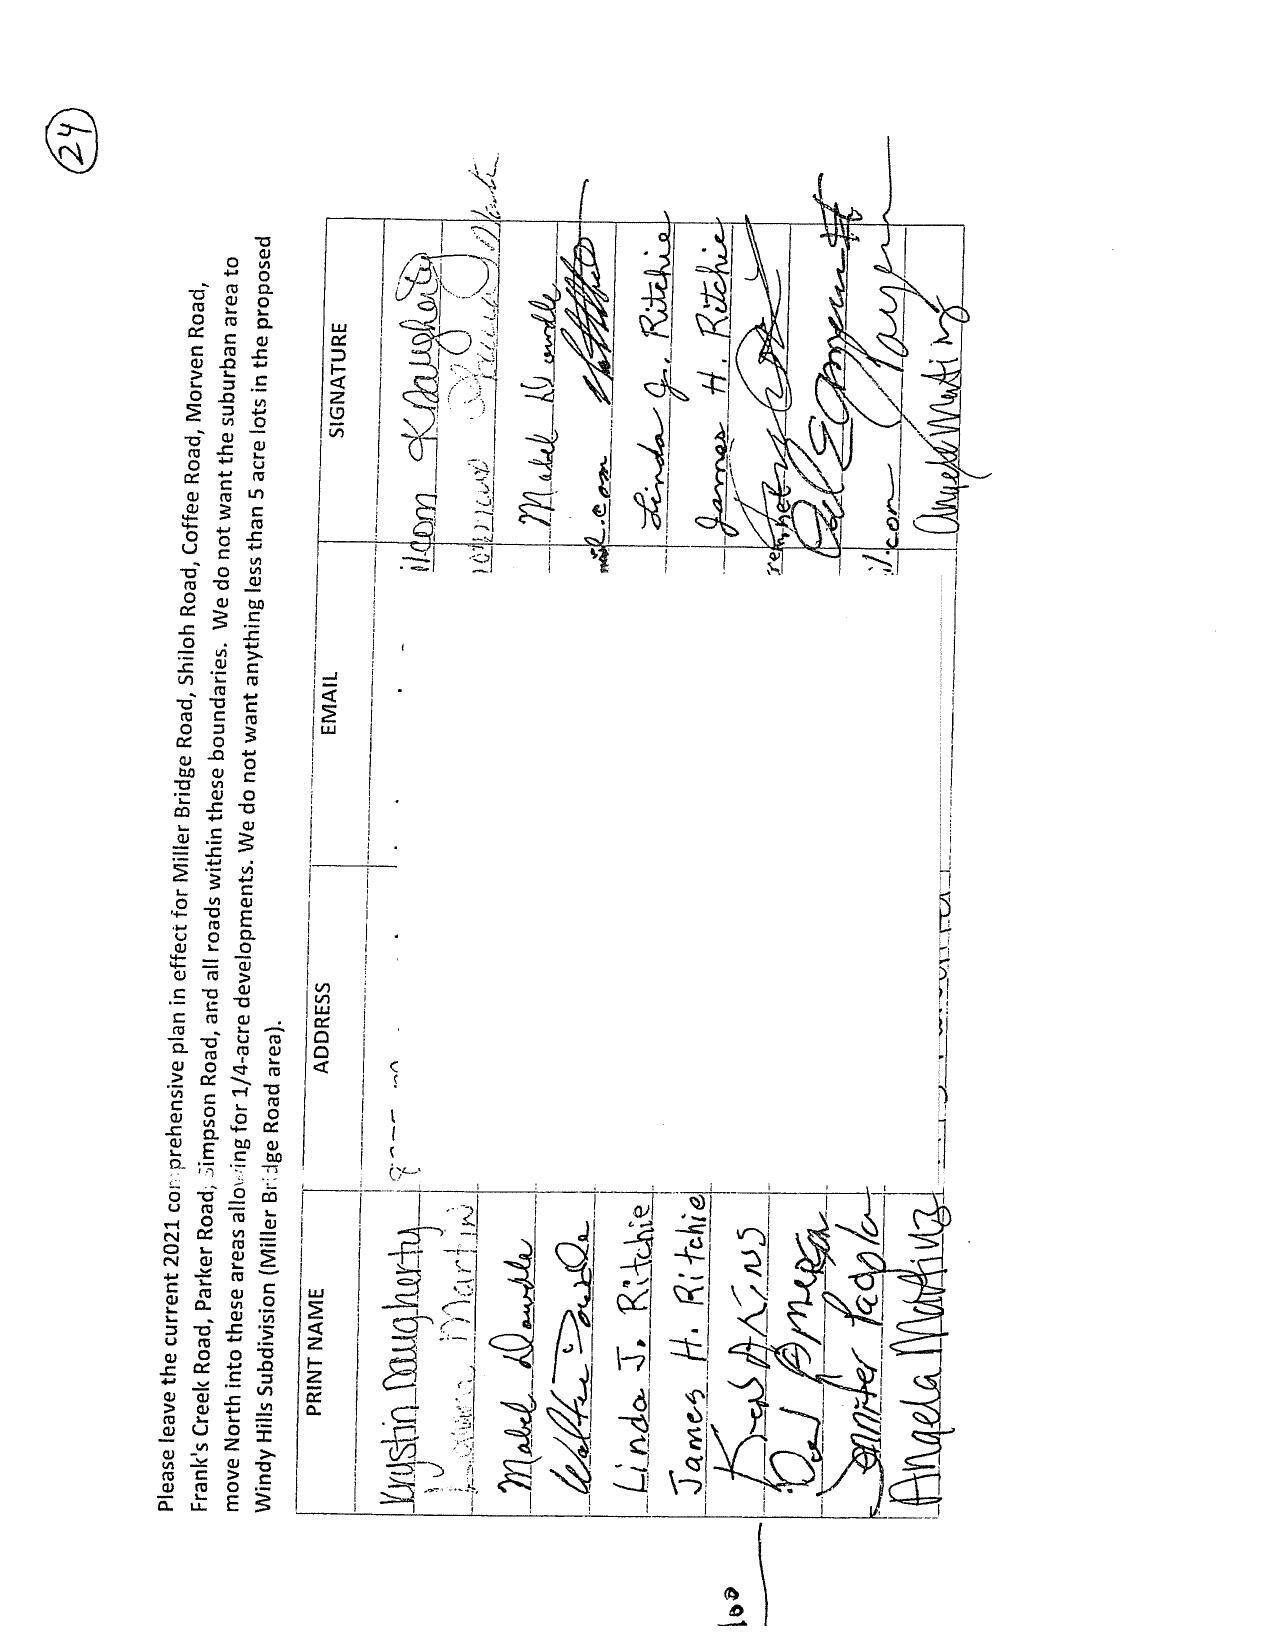 24
Please leave the current 2021 comprehensive plan in effect for Miller Bridge Road, Shiloh Road, Coffee Road, Morven Road,
Frank's Creek Road, Parker Road, Simpson Road, and all roads within these boundaries. We do not want the suburban area to
move North into these areas allowing for 1/4-acre developments. We do not want anything less than 5 acre lots in the proposed
Windy Hills Subdivision (Miller Bridge Road area).
PRINT NAME ADDRESS EMAIL SIGNATURE
Krystin Daugherty il.com KDaugherty
Martin
Mabel Dowdle Mabel Dowdle
Dowdle mail.com
Linda J. Ritchie Linda J. Ritchie
James H. Ritchie James H. Ritchie
Ken Akins
Jennifer il.com
Angela Martinz Angela Martinz
100